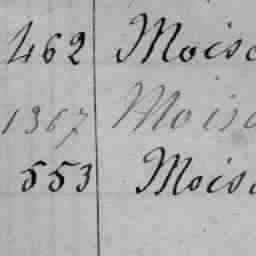 462 Moise
1367 Moise
553 Moise